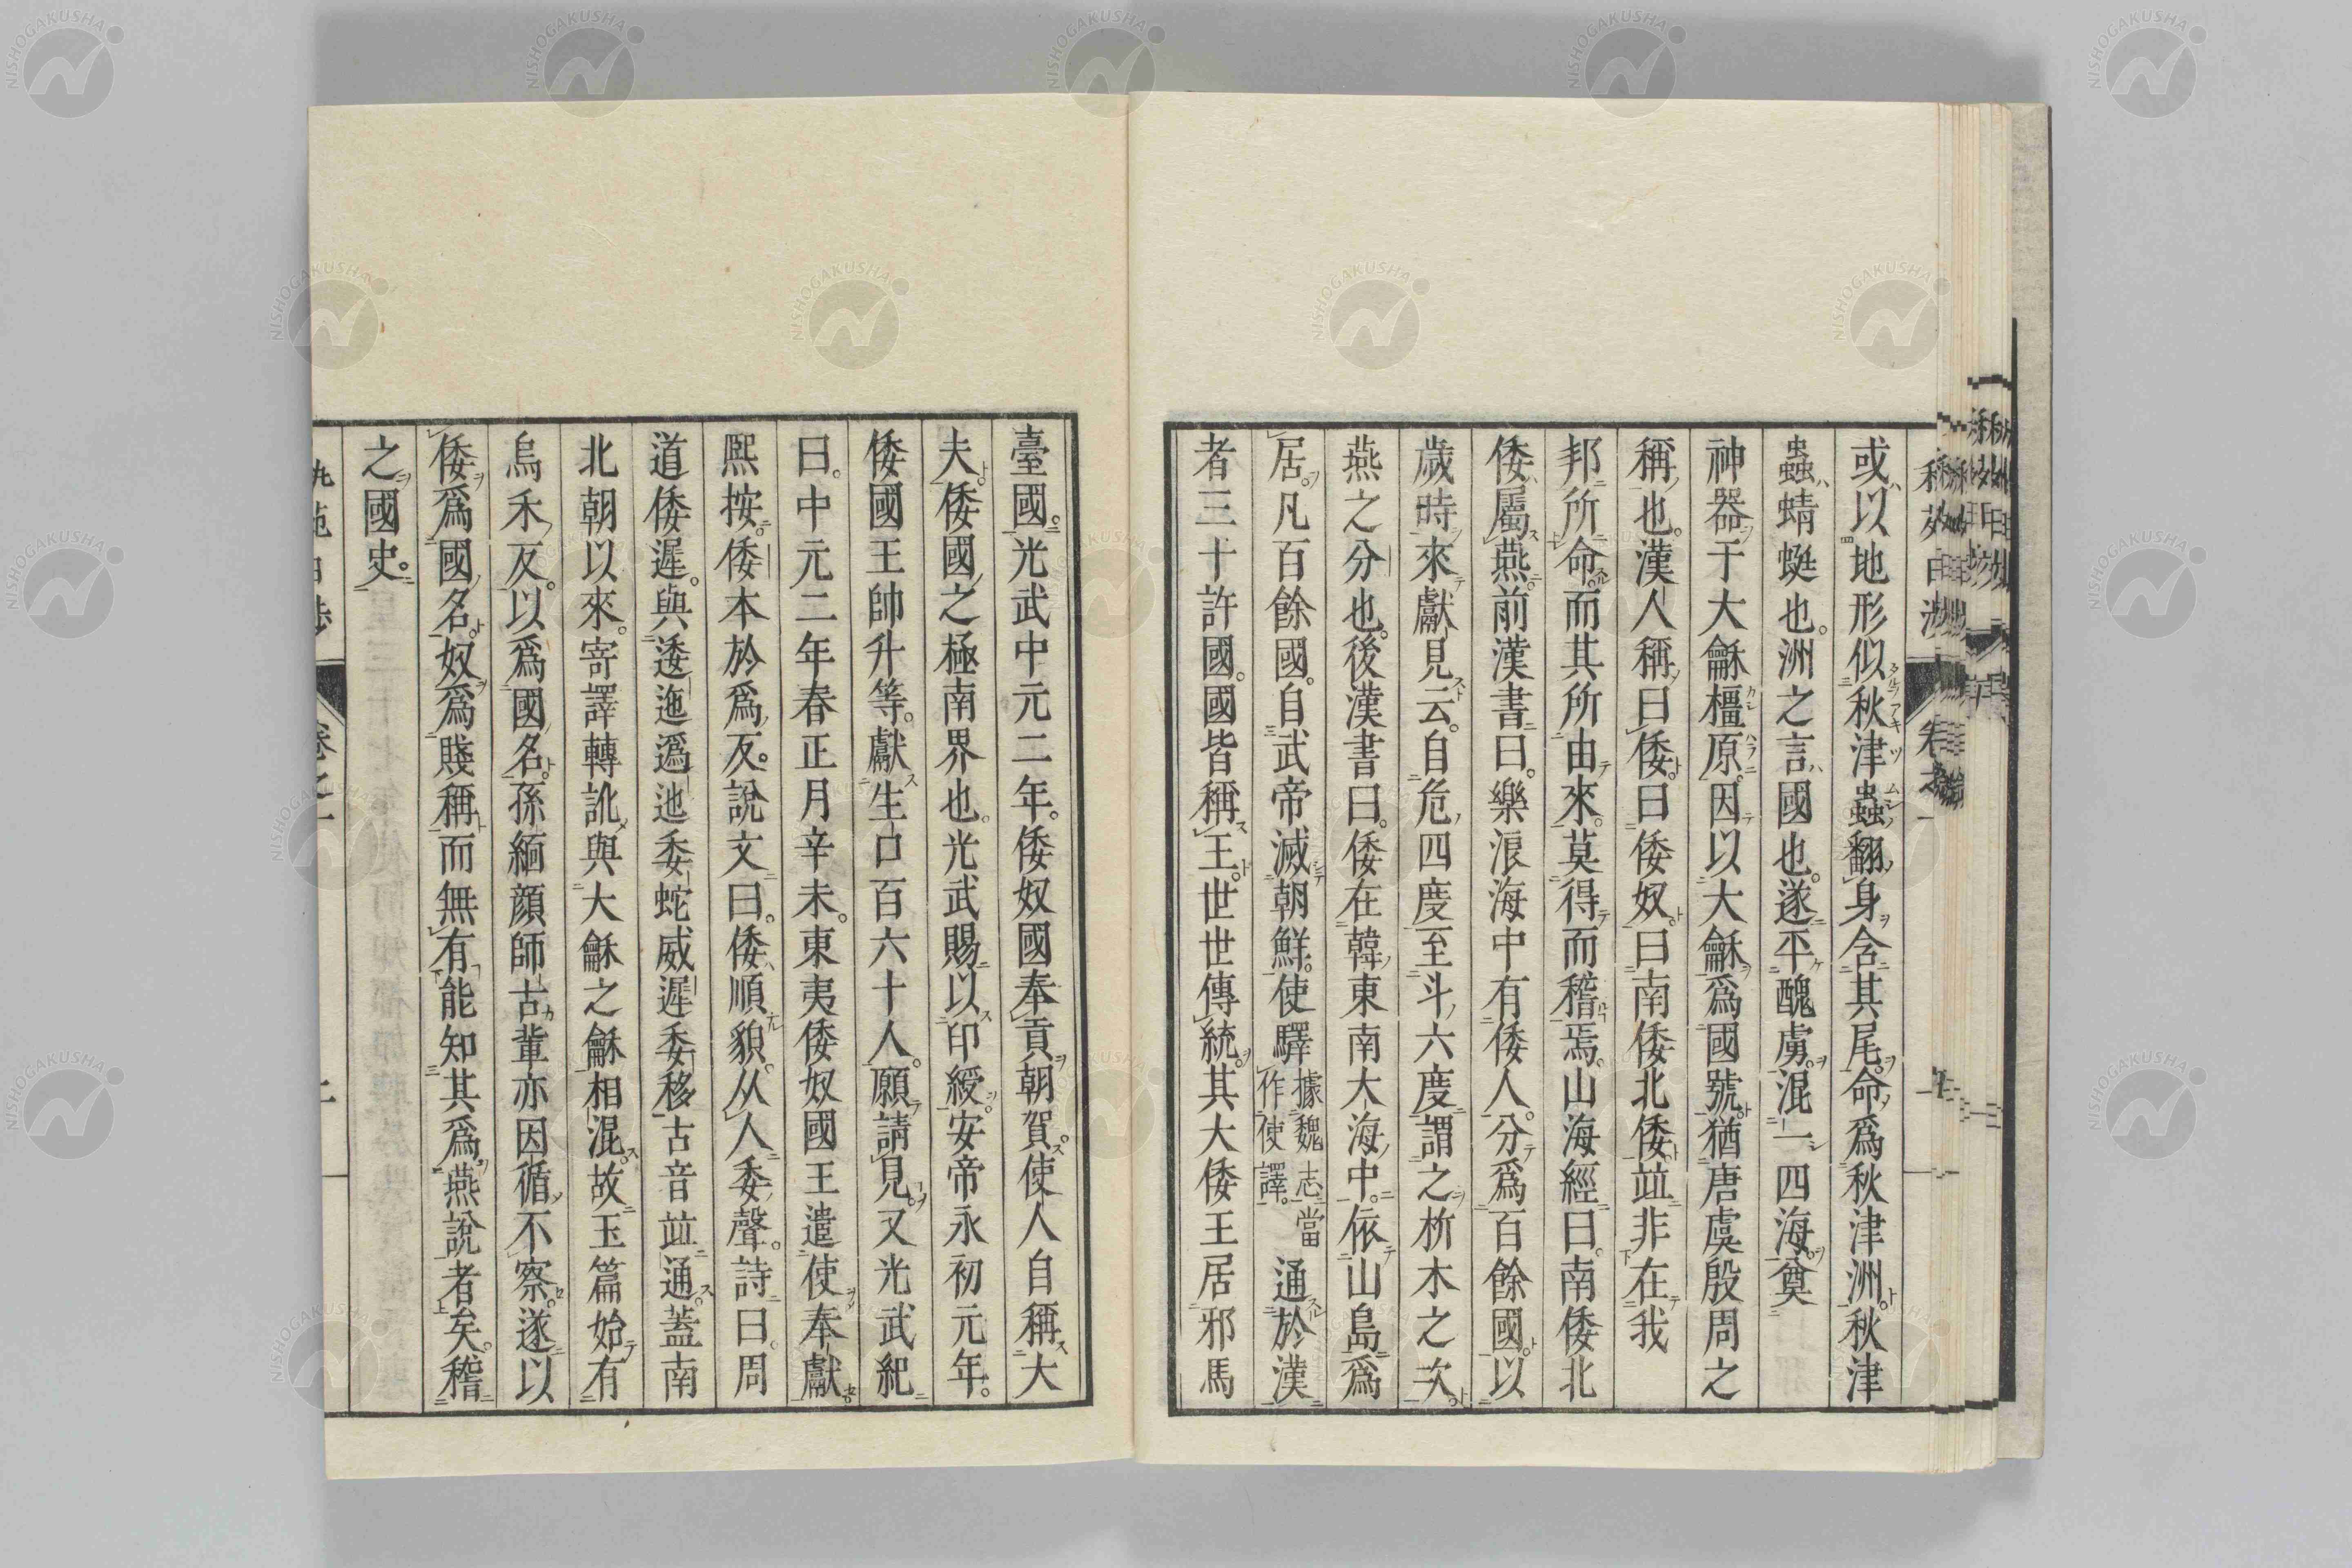 或以地形似秋津蟲翻身含其尾命爲秋津洲秋津
蟲蜻蜓也。洲之言國也。遂平醜虜。混一四海奠
神器于大龢橿原。因以大龢爲國號。猶唐虞殷周之
稱也。漢人稱曰倭。曰倭奴。曰南倭北倭。竝非在我
邦所命。而其所由來。莫得而稽焉。山海經曰。南倭北
倭屬燕。前漢書曰。樂浪海中有倭人。分爲百餘國。以
歲時來獻見云。自危四度至斗六度。謂之析木之次。
燕之分也。後漢書曰。倭在韓東南大海中。依山島爲
居。凡百餘國。自武帝滅朝鮮。使驛據魏志當作使譯。通於漢
者三十許國。國皆稱王。世世傳統。其大倭王居邪馬
臺國。光武中元二年。倭奴國奉貢朝賀。使人自稱大
夫。倭國之極南界也。光武賜以印綬。安帝永初元年。
倭國王帥升等。獻生口百六十人。願請見。又光武紀
曰。中元二年春正月辛未。東夷倭奴國王遣使奉獻。
熙按。倭本於爲反。說文曰。倭順貌。从人委聲。詩曰。周
道倭遲。與逶迤逶迆委蛇威遲委移古音竝通。蓋南
北朝以來。寄譯轉訛。與大龢之龢相混。故玉篇始有
烏禾反。以爲國名。孫緬顏師古輩亦因循不察。遂以
倭爲國名。奴爲賤稱。而無有能知其爲燕說者矣。稽
之國史。
卷之一
NISHOGAKUSHA